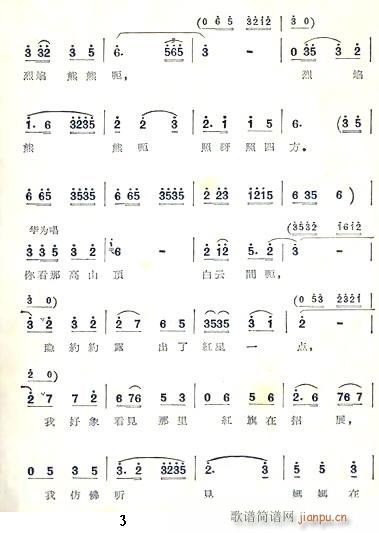 (0 6 5 3212)
3 32 3 5 6. 565 3 - 0 35 3 2
烈焰 熊熊 呃, 烈 焰
1. 6 3235 2 2 3 2. 1 1 5 6. (3 5
熊 熊 呃 照呀照四方。
6 65 3235 6 65 3235 2 23 1215 6 35 6)
华为唱 (3532 1612)
3 3 5 3 2 6 - 2 12 5. 2 3 -
你看那高山頂 白云 間呃,
3 0) (0 53 2321)
3 2 3 2 2 7 6 5 3535 3 2 2 -
隐約約露 出了紅星一 点,
2 0)
2 7 7 2 6 76 5 6 0 6 5 6 2. 6 76 7
我好象看見 那里 紅旗在招 展,
0 5 3 5 2 3. 3235 2. 3 5 5
我仿彿听 見 媽媽在
3
歌谱简谱网
jianpu.cn